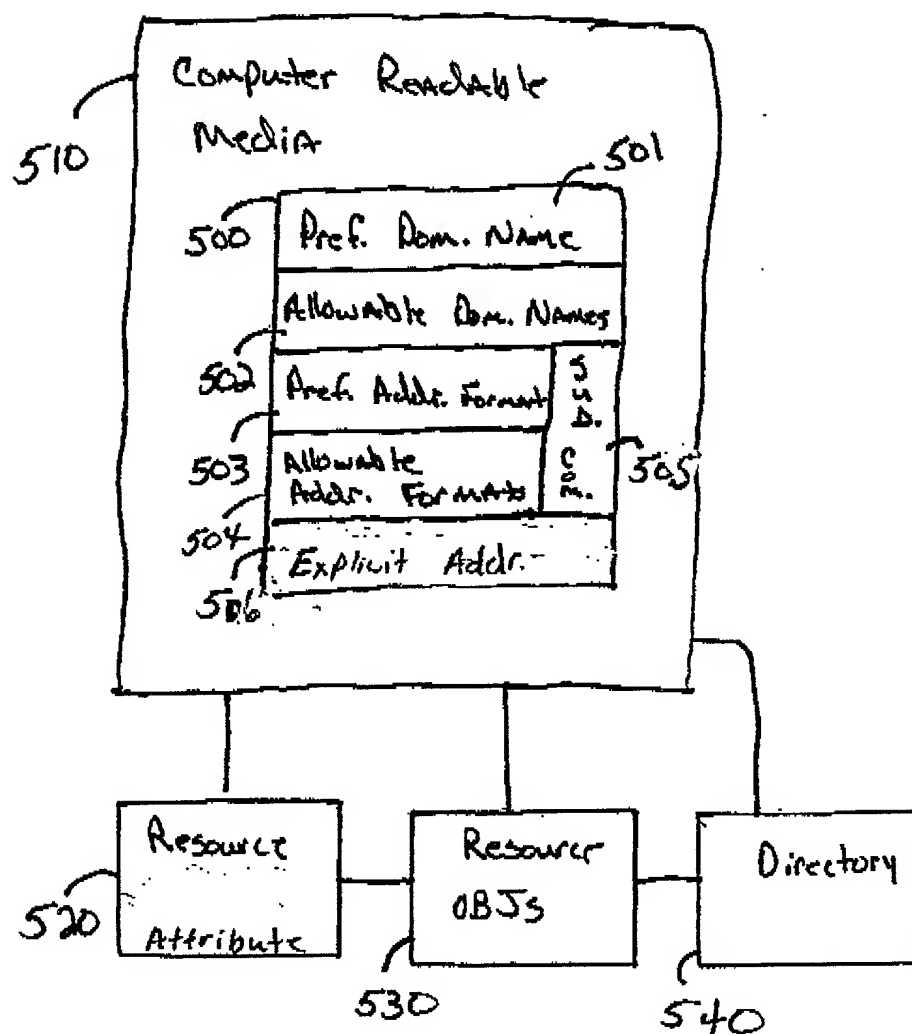 Computer Readable
Media
510
501
500
Pref. Dom. Name
Allowable Dom. Names
502
Pref. Addr. Format
503
Sub. Com.
505
Allowable
Addr. Formats
504
Explicit Addr.
506
Resource
Attribute
520
Resource
OBJs
530
Directory
540